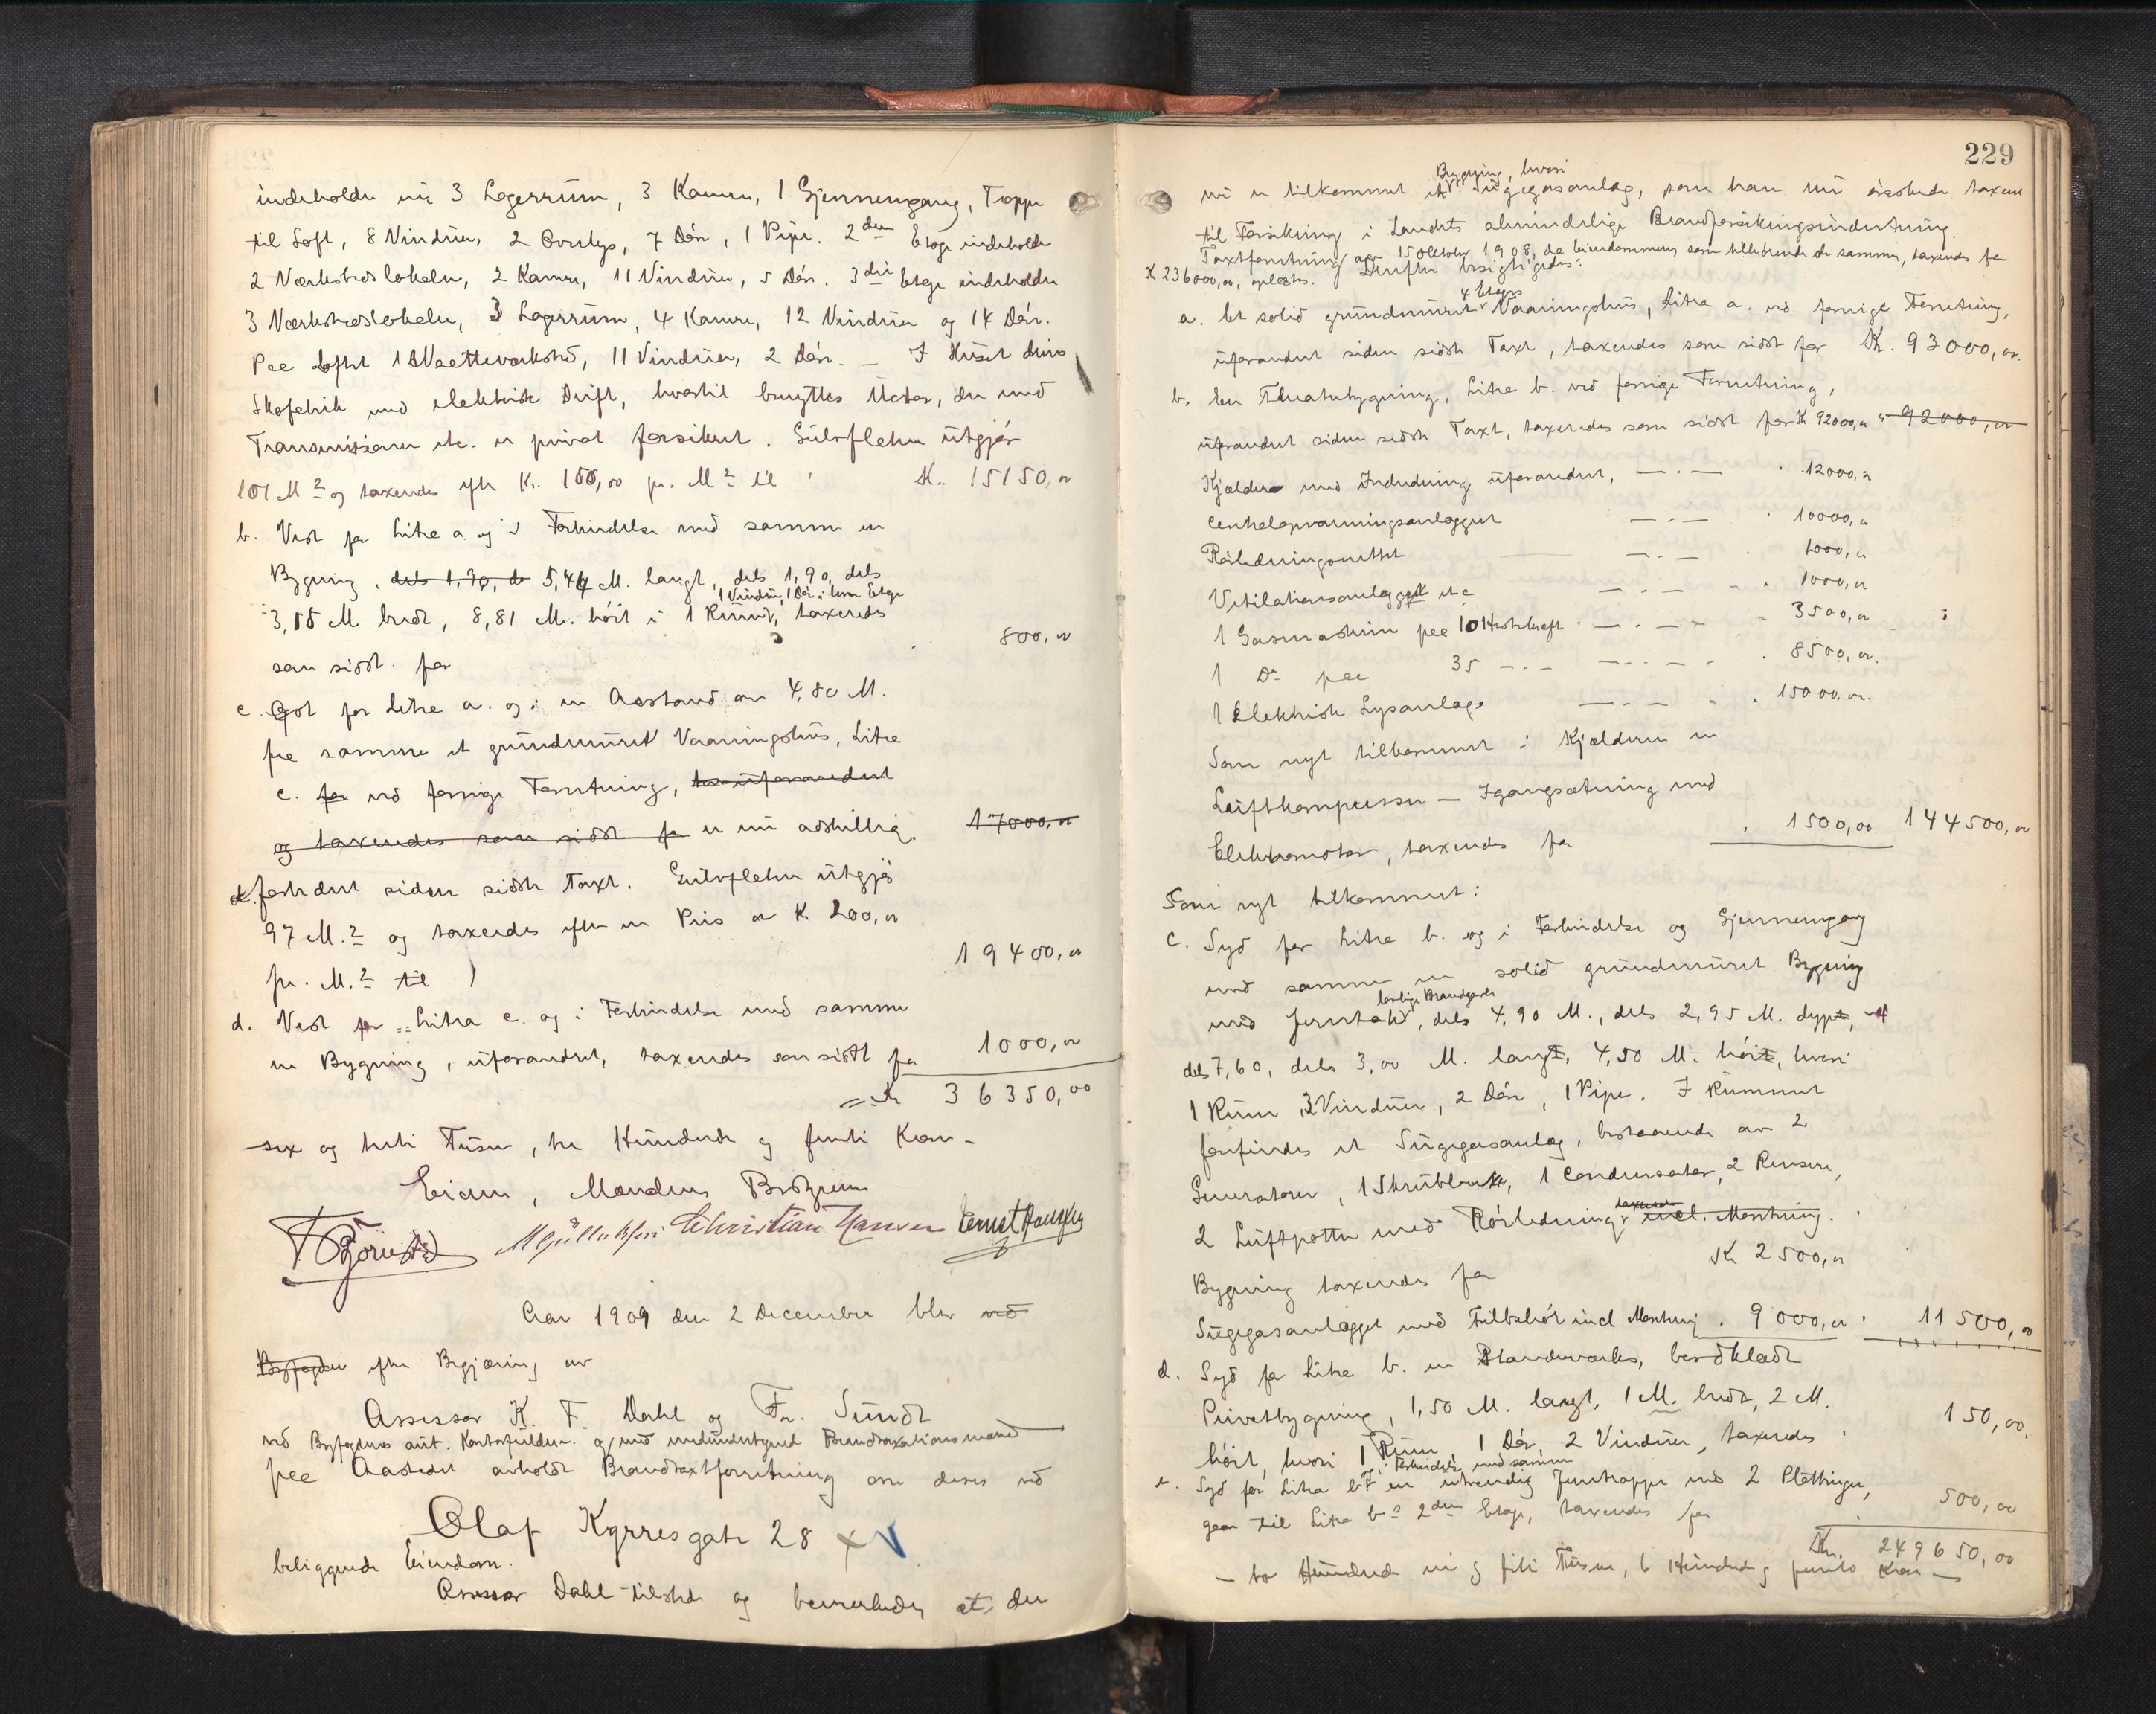 indeholder nu 3 Lagerrum, 3 Kamre, 1 Gjennemgang, Trappe
til Loft, 8 Vinduer, 2 Overlys, 7 Dør, 1 Pipe. 2den Etage indeholder
2 Værkstedslokaler, 2 Kamre, 11 Vinduer, 5 Dør. 3die Etage indeholder
3 Værkstedslokaler, 3 Lagerrum, 4 Kamre, 12 Vinduer og 14 Dør.
Paa Loftet 1 Værksted, 11 Vinduer, 2 Dør. — I Huset drives
Skofabrik med elektrisk Drift, hvortil benyttes Motor, der med
Transmissioner etc. er privat forsikret. Gulvfladen utgjør
101 M2 og taxeres efter K. 150,00 pr. M2 til K. 15150,00
b. Vest for Litra a og i Forbindelse med samme en
Bygning, dels 1,90, de 5,44 M. langt, dels 1,90, dels
1 Vindu, 1 Dør i hver Etage
3,15 M bredt, 8,81 M. høit i 1 Rum, taxeredes
som sidst for 800,00
c. Øst for Litra a. og i en Avstand av 4,80 M.
fra samme et grundmuret Vaaningshus, Litra
c. for ved forrige Forretning, er uforandret
og taxeredes som sidst for er nu adskillig 17000,00
forbedret siden sidste Taxt. Gulvfladen utgjør
97 M.2 og taxeredes efter en Pris av K 200,00
pr. M.2 til 19400,00
d. Vest for Litra c. og i Forbindelse med samme
en Bygning, uforandret, taxeredes som sidst for 1000,00
= Kr 36350,00
— sex og treti Tusen, tre Hundrede og femti Kron —
Eieren, Mandrup Brdr
Christian Hansen
Aar 1909 den 2 December blev ved
Byfogden efter Begjæring av
Assessor K. F. Dahl og Fr. Sundt
ved Byfogdens aut. Kontorfuldm. og med undertegnede Brandtaxationsmænd
paa Aastedet avholdt Brandtaxtforretning over deres ved
Olaf Kyrresgate 28 x V
beliggende Eiendom.
Assessor Dahl tilstede og bemerkede, at der
229
Bygning, hvori
nu er tilkommet et Sugegasanlæg, som han nu ønskede taxeret
til Forsikring i Landets almindelige Brandforsikringsindretning.
Taxtforretning av 15 Oktober 1908, da Eiendommen som tilhørende de samme, taxeredes for
K 236000,00, oplæstes. Derefter besigtigedes:
4 Etages
a. Et solid grundmuret Vaaningshus, Litra a. ved forrige Forretning,
uforandret siden sidste Taxt, taxeredes som sidst for Kr. 93000,00.
b. En Theaterbygning, Litra b. ved forrige Forretning,
uforandret siden sidste Taxt, taxeredes som sidst for K 92000,00 " 92000,00
Kjælder med Indredning uforandret, — . — 12000,00
Centralopvarmingsanlægget — . — 10000,00
Rørledningsnettet — . — 1000,00
Ventilationsanlægget etc — . — 1000,00
1 Gasmaskin paa 10 Hestekraft — . — 3500,00
1 Do paa 35 — . — — . — 8500,00.
1 Elektrisk Lysanlæg — . — 15000,00.
Som nyt tilkommet i Kjælderen en
Luftkompressor — Igangsætning med
Elektromotor, taxeredes for 1500,00 144500,00
Som nyt tilkommet:
c. Syd for Litra b. og i Forbindelse og Gjennemgang
med samme en solid grundmuret Bygning
med Jerntak, dels 4,90 M., dels 2,95 M. dypt,
dels 7,60, dels 3,00 M. langt, 4,50 M. høit, hvori
1 Rum, 3 Vinduer, 2 Dør, 1 Pipe. I Rummet
forfindes et Sugegasanlæg, bestaaende av 2
Generatorer, 1 Skrubber, 1 Condensator, 2 Rensere,
taxeredes
2 Luftpotter med Rørledning incl. Montering.
Bygning taxeredes for K 2500,00
Sugegasanlægget med Tilbehør incl Montering . 9000,00 11500,00
d. Syd for Litra b. en Standværks, bordklædt
Privetbygning, 1,50 M. langt, 1 M. bredt, 2 M.
høit, hvori 1 Rum, 1 Dør, 2 Vinduer, taxeredes 150,00.
og i Forbindelse med samme
e. Syd for Litra b. en utvendig Jerntrappe med 2 Plattinger,
gaar til Litra bs 2den Etage, taxeredes for 500,00
Kr. 249650,00
— to Hundrede ni og firti Tusen, 6 Hundrede og femti Kron —